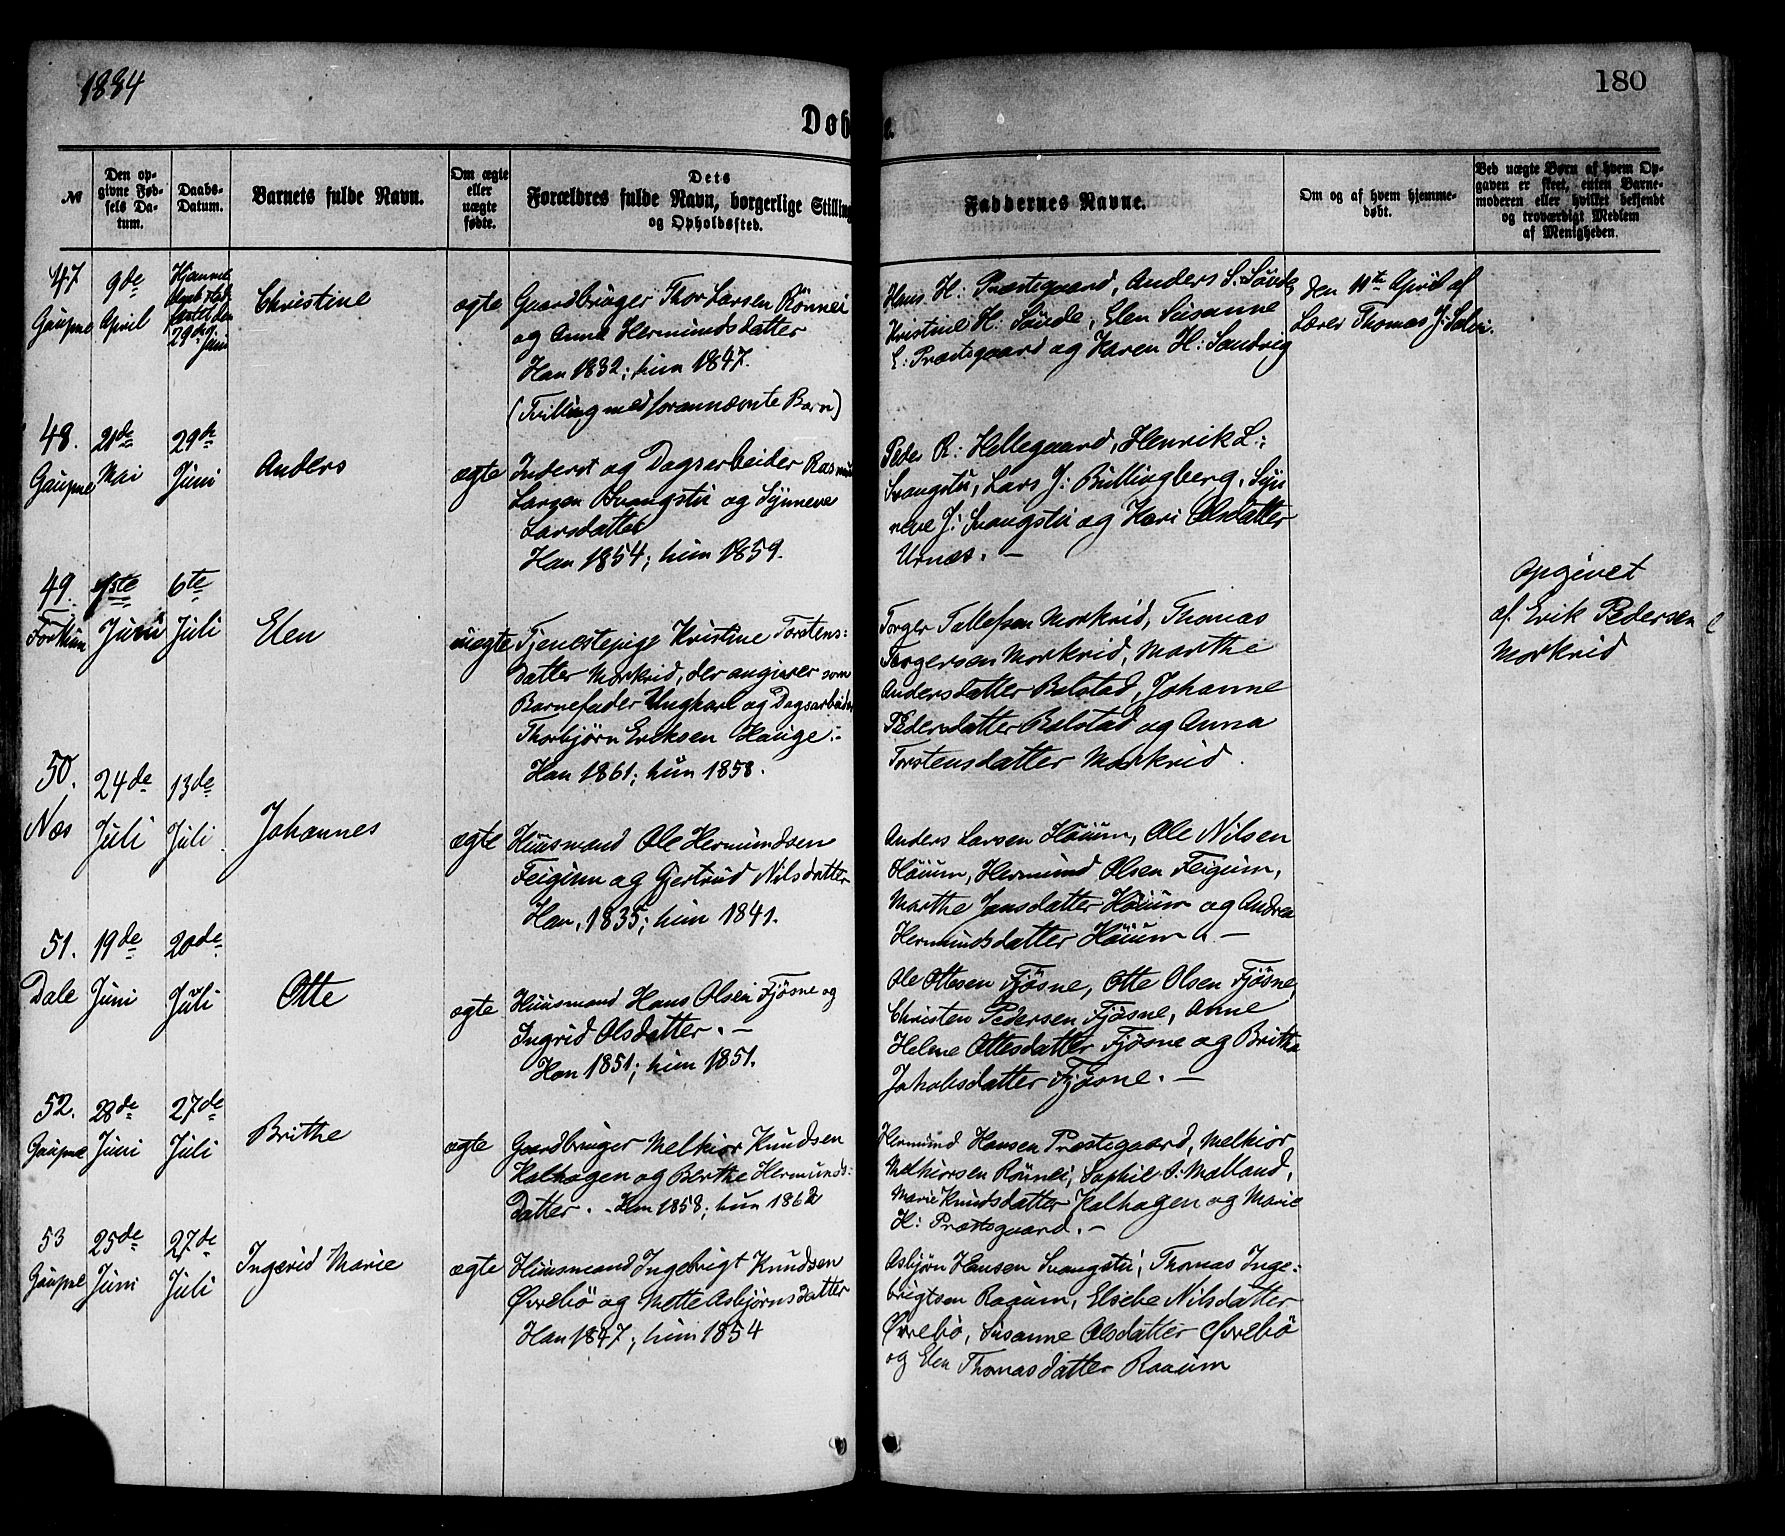 1884
180
Døb
e.
№
Den op-
givne Fød-
sels Da-
tum.
Daabs-
Datum.
Barnets fulde Navn.
Om ægte
eller
uægte
fødte.
Dets
Forældres fulde Navn, borgerlige Stilling
og Opholdssted.
Faddernes Navne.
Om og af hvem hjemme-
døbt.
Ved uægte Børn af hvem Op-
gaven er skeet, enten Barne-
moderen eller hvilket bekjendt
og troværdigt Medlem
af Menigheden.
47
Gaupne
9de
April
Hjemme
døbt
29de
Juni
Christine
ægte
Gaardbruger Thor Larsen Rönnei
og Anna Hermundsdatter
Han 1832; hun 1847.
(Tvilling med forannævnte Barn)
Hans H: Præstegaard, Anders S: Sövde,
Kristine H: Sövde, Elen Susanne
E: Præstegaard og Karen H: Sandvig
Den 11te April af
Lærer Thomas J:
48.
Gaupne
21de
Mai
29de
Juni
Anders
ægte
Inderst og Dagsarbeider Rasmus
Larsen Svangstu og Synneve
Larsdatter
Han 1854; hun 1859.
Peder R: Hellegaard, Henrik L:
Svangstu, Lars J: Bullingberg, Syn
neve J: Svangstu og Kari Olsdatter
Urnæs. —
49.
Fortun
1ste
Juni
6te
Juli
Elen
uægte
Tjenestepige Kristine Torstens:
Datter Morkrid, der angiver som
Barnefader Ungkarl og Dagsarbeider
Thorbjørn Eriksen Hauge.
Han 1861; hun 1858.
Torger Tollefsen Morkrid, Thomas
Torgersen Morkrid, Marthe
Andersdatter Bolstad, Johanne
Pedersdatter Bolstad og Anna
Torstensdatter Morkrid.
Opgivet
af Erik Pedersen
Morkrid
50.
Næs
24de
Juli
13de
Juli
Johannes
ægte
Huusmand Ole Hermundsen
Feigum og Gjertrud Nilsdatter
Han, 1835; hun 1841.
Anders Larsen Höium, Ole Nilsen
Höium, Hermund Olsen Feigum,
Marthe Jonsdatter Höium og Andrea
Hermundsdatter Höium. —
51.
Dale
19de
Juni
20de
Juli
Otte
ægte
Huusmand Hans Olsen Fjösne og
Ingrid Olsdatter. —
Han 1851; hun 1851.
Ole Ottesen Fjösne, Otte Olsen Fjösne,
Christen Pedersen Fjösne, Anne
Helene Ottesdatter Fjösne og Brithe
Jakobsdatter Fjösne. —
52.
Gaupne
28de
Juni
27de
Juli
Brithe
ægte
Gaardbruger Melkior Knudsen
Kalhagen og Berthe Hermunds:
Datter. - Han 1858; hun 1862
Hermund Hansen Præstegaard, Melkior
Melkiorsen Rönnei, Sophie A: Molland,
Marie Knudsdatter Kalhagen og Marie
H: Præstegaard. —
53
Gaupne
25de
Juni
27de
Juli
Ingerid Marie
ægte
Huusmand Ingebrigt Knudsen
Øvrebö og Mette Asbjørnsdatter
Han 1847; hun 1854
Asbjørn Hansen Svangstu, Thomas Inge-
brigtsen Raaum, Elsebe Nilsdatter
Øvrebö, Susanne Olsdatter Øvrebö
og Elen Thomasdatter Raaum